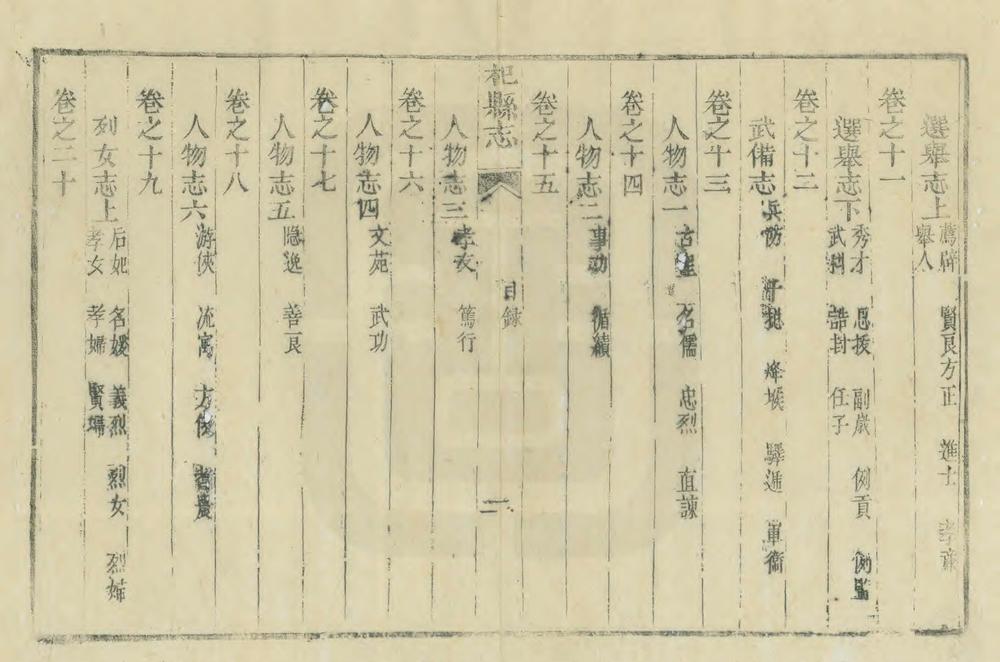 選舉志上 薦辟 賢良方正 進士 孝廉 舉人
卷之十一
選舉志下 秀才 恩拔 副歲 例貢 例監 武科 誥封 任子
卷之十二
武備志 兵防 烽堠 驛遞 軍衛
卷之十三
人物志一 古蹟 名儒 忠烈 直諫
卷之十四
人物志二 事功 循績
卷之十五
杞縣志 目録 二
人物志三 孝友 篤行
卷之十六
人物志四 文苑 武功
卷之十七
人物志五 隱逸 善良
卷之十八
人物志六 游俠 流寓 方伎 耆農
卷之十九
列女志上 后妃 名媛 義烈 烈女 烈婦 孝女 孝婦 賢婦
卷之二十